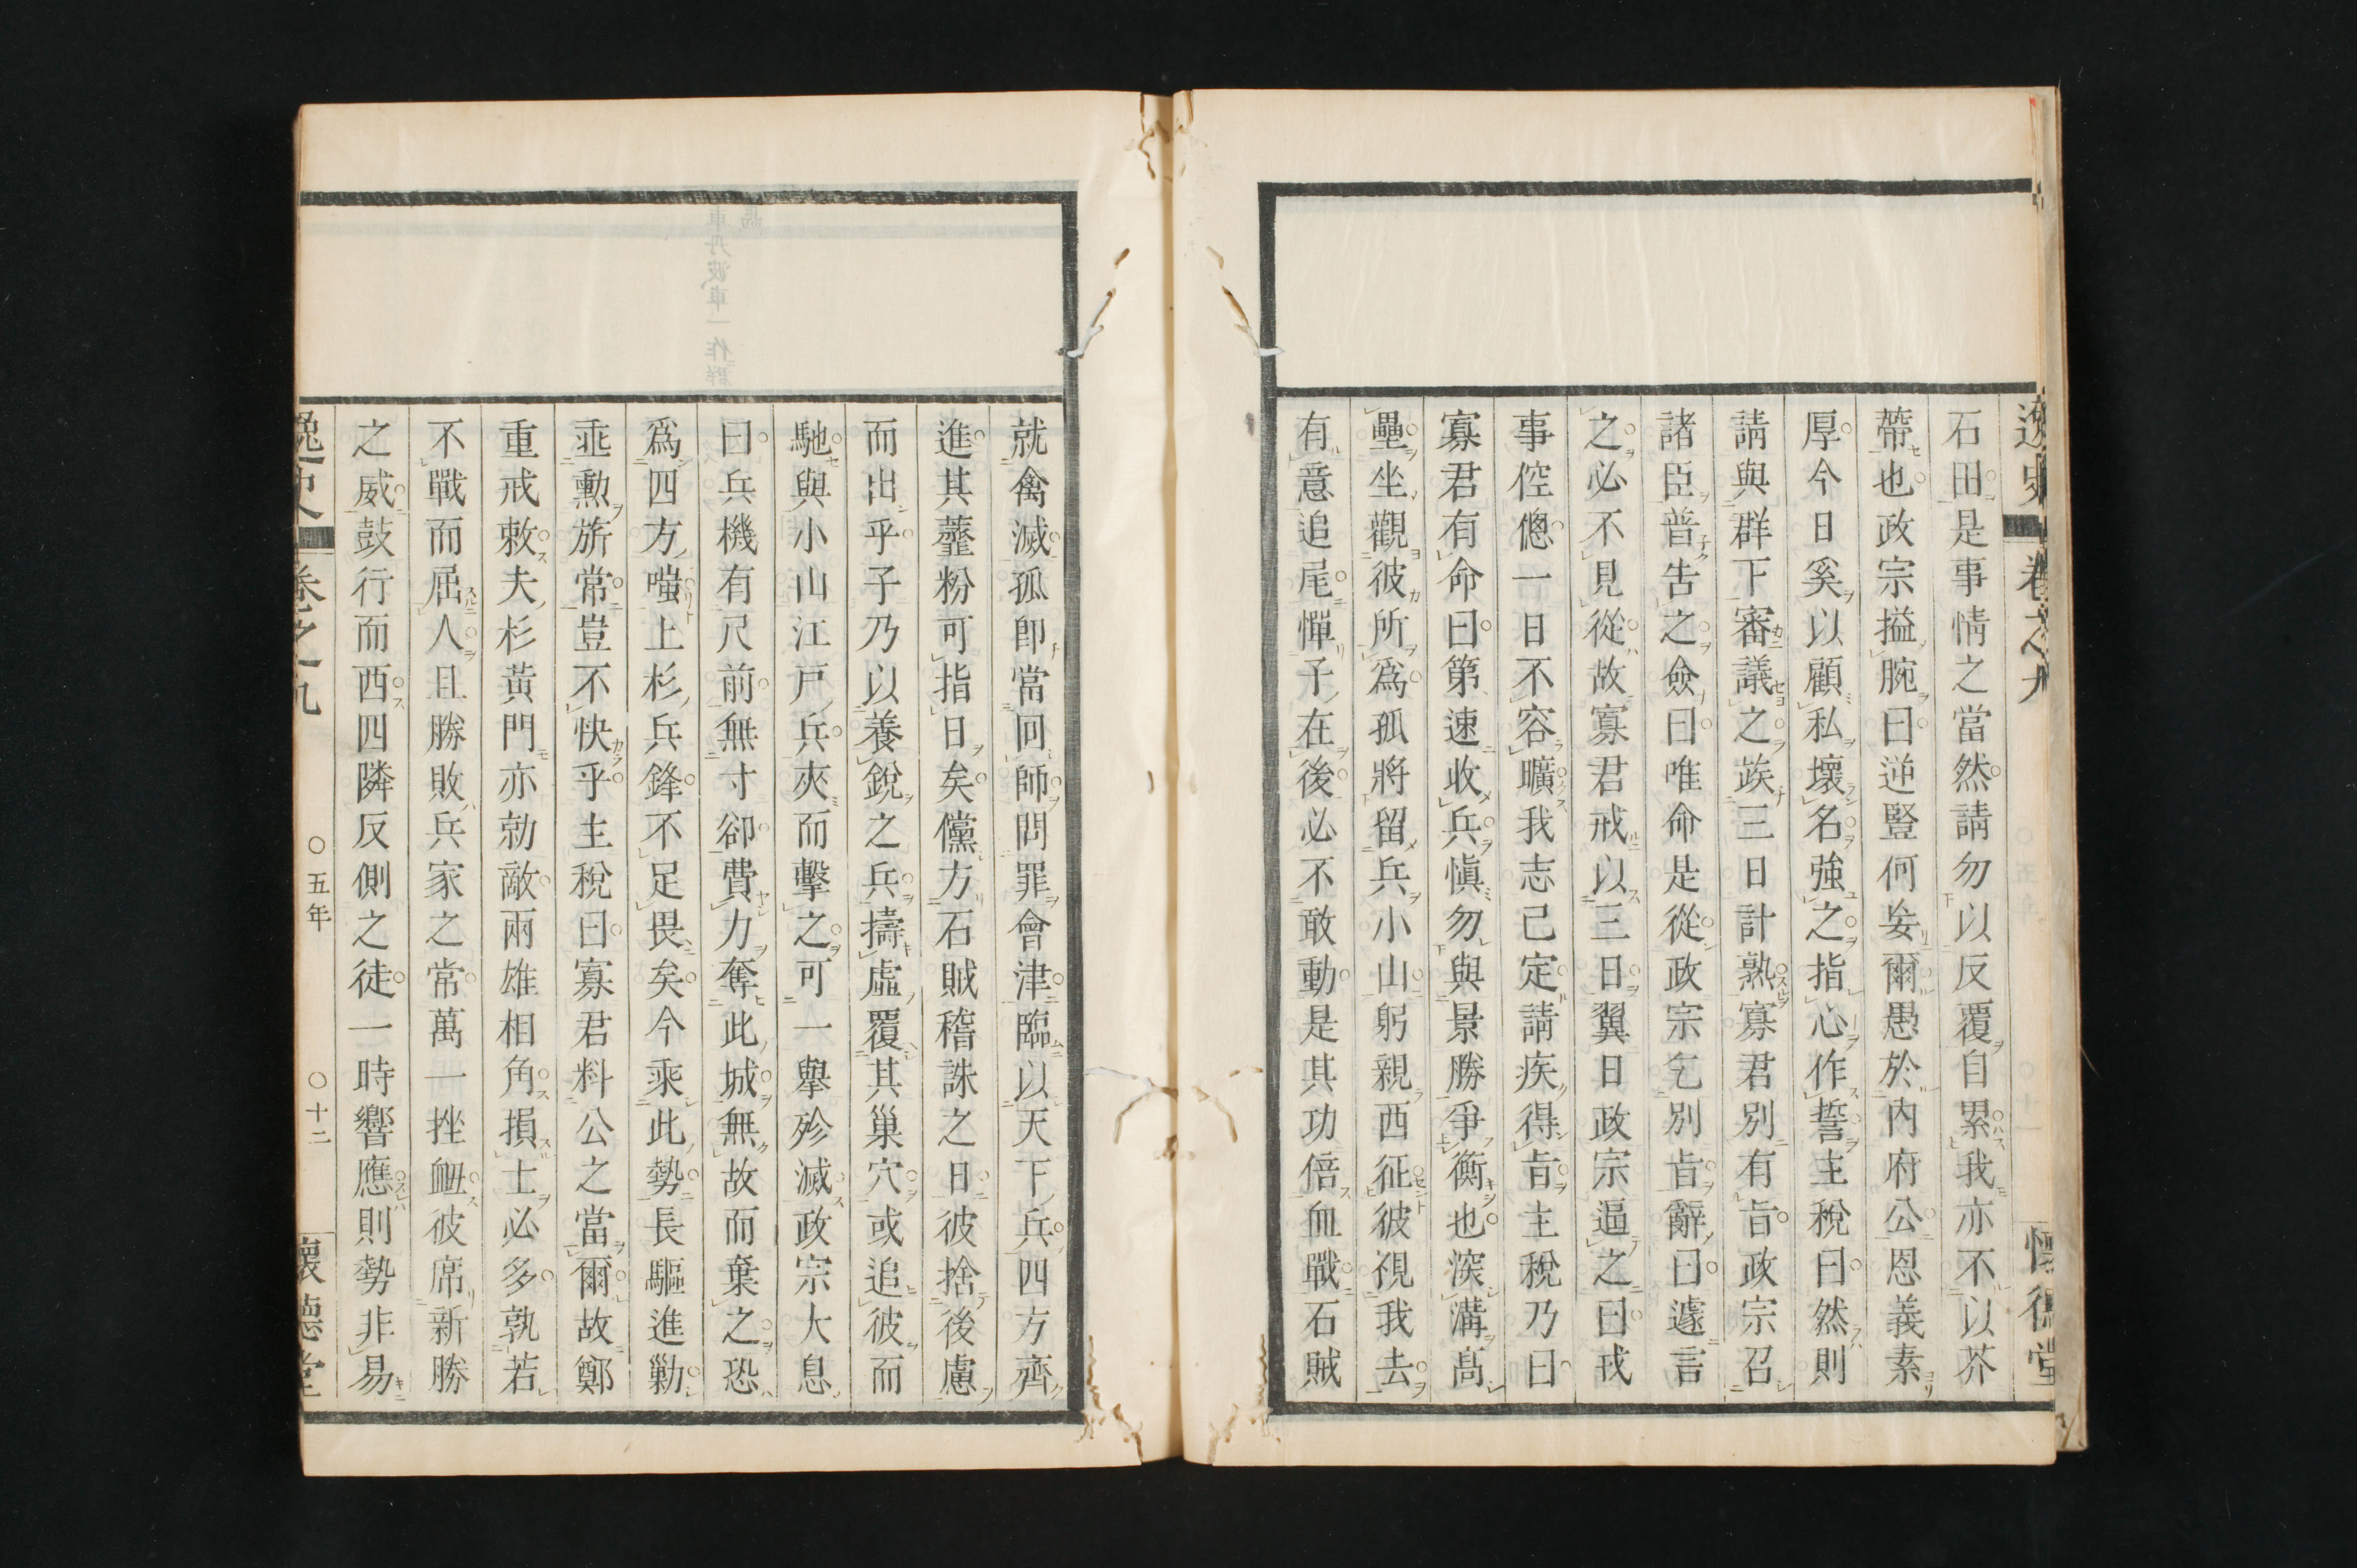 逸史 卷之九 懷德堂
石田是事情之當然請勿以反覆自累我亦不以芥
蔕也政宗搤腕曰逆豎何妄爾愚於內府公恩義素
厚今日奚以顧私壞名強之指心作誓主稅曰然則
請與群下審議之族三日計熟寡君別有旨政宗召
諸臣普告之僉曰唯命是從政宗乞別旨辭曰遽言
之必不見從故寡君戒以三日翼日政宗逼之曰戎
事倥傯一日不容曠我志已定請疾得旨主稅乃曰
寡君有命曰第速收兵愼勿與景勝爭衡也深溝高
壘坐觀彼所爲孤將留兵小山躬親西征彼視我去
有意追尾憚子在後必不敢動是其功倍血戰石賊
就禽滅孤卽當回師問罪會津臨以天下兵四方齊
進其虀粉可指日矣儻方石賊稽誅之日彼捨後慮
而出乎子乃以養銳之兵擣虛覆其巢穴或追彼而
馳與小山江戸兵夾而擊之可一舉殄滅政宗大息
曰兵機有尺前無寸卻費力奪此城無故而棄之恐
爲四方嗤上杉兵鋒不足畏矣今乘此勢長驅進勦
乖勳旂常豈不快乎主稅曰寡君料公之當爾故鄭
重戒敕夫杉黃門亦勍敵兩雄相角損士必多孰若
不戰而屈人且勝敗兵家之常萬一挫衂彼席新勝
之威鼓行而西四隣反側之徒一時響應則勢非易
逸史 卷之九 ○五年 ○十二 懷德堂